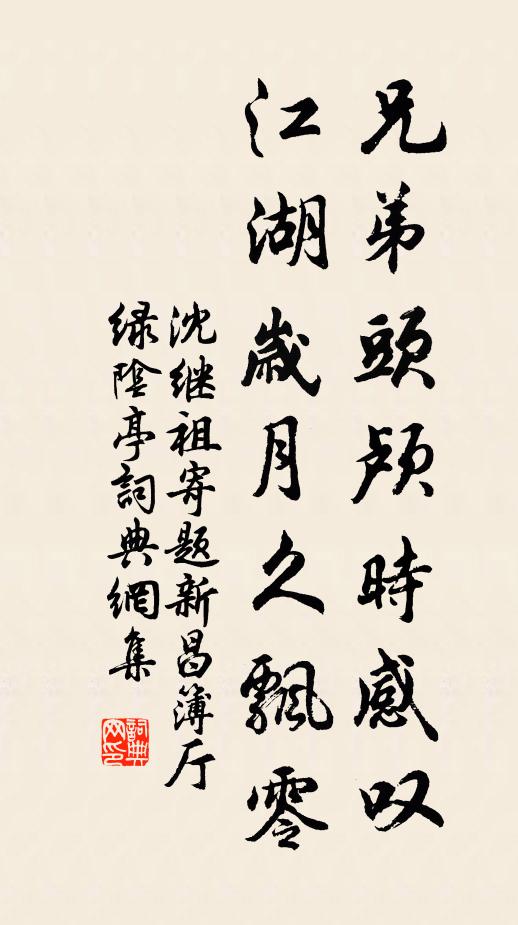 兄弟頭颅時感叹
江湖歲月久飄零
沈继祖寄题新昌簿厅
绿陰亭詞典網集
詞典
网印